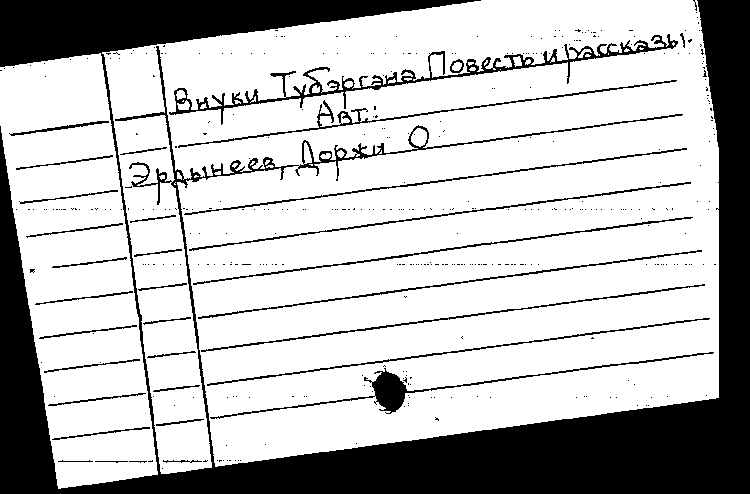 Внуки Тубэргэна. Повесть и рассказы.
Авт.:
Эрдынеев, Доржи О